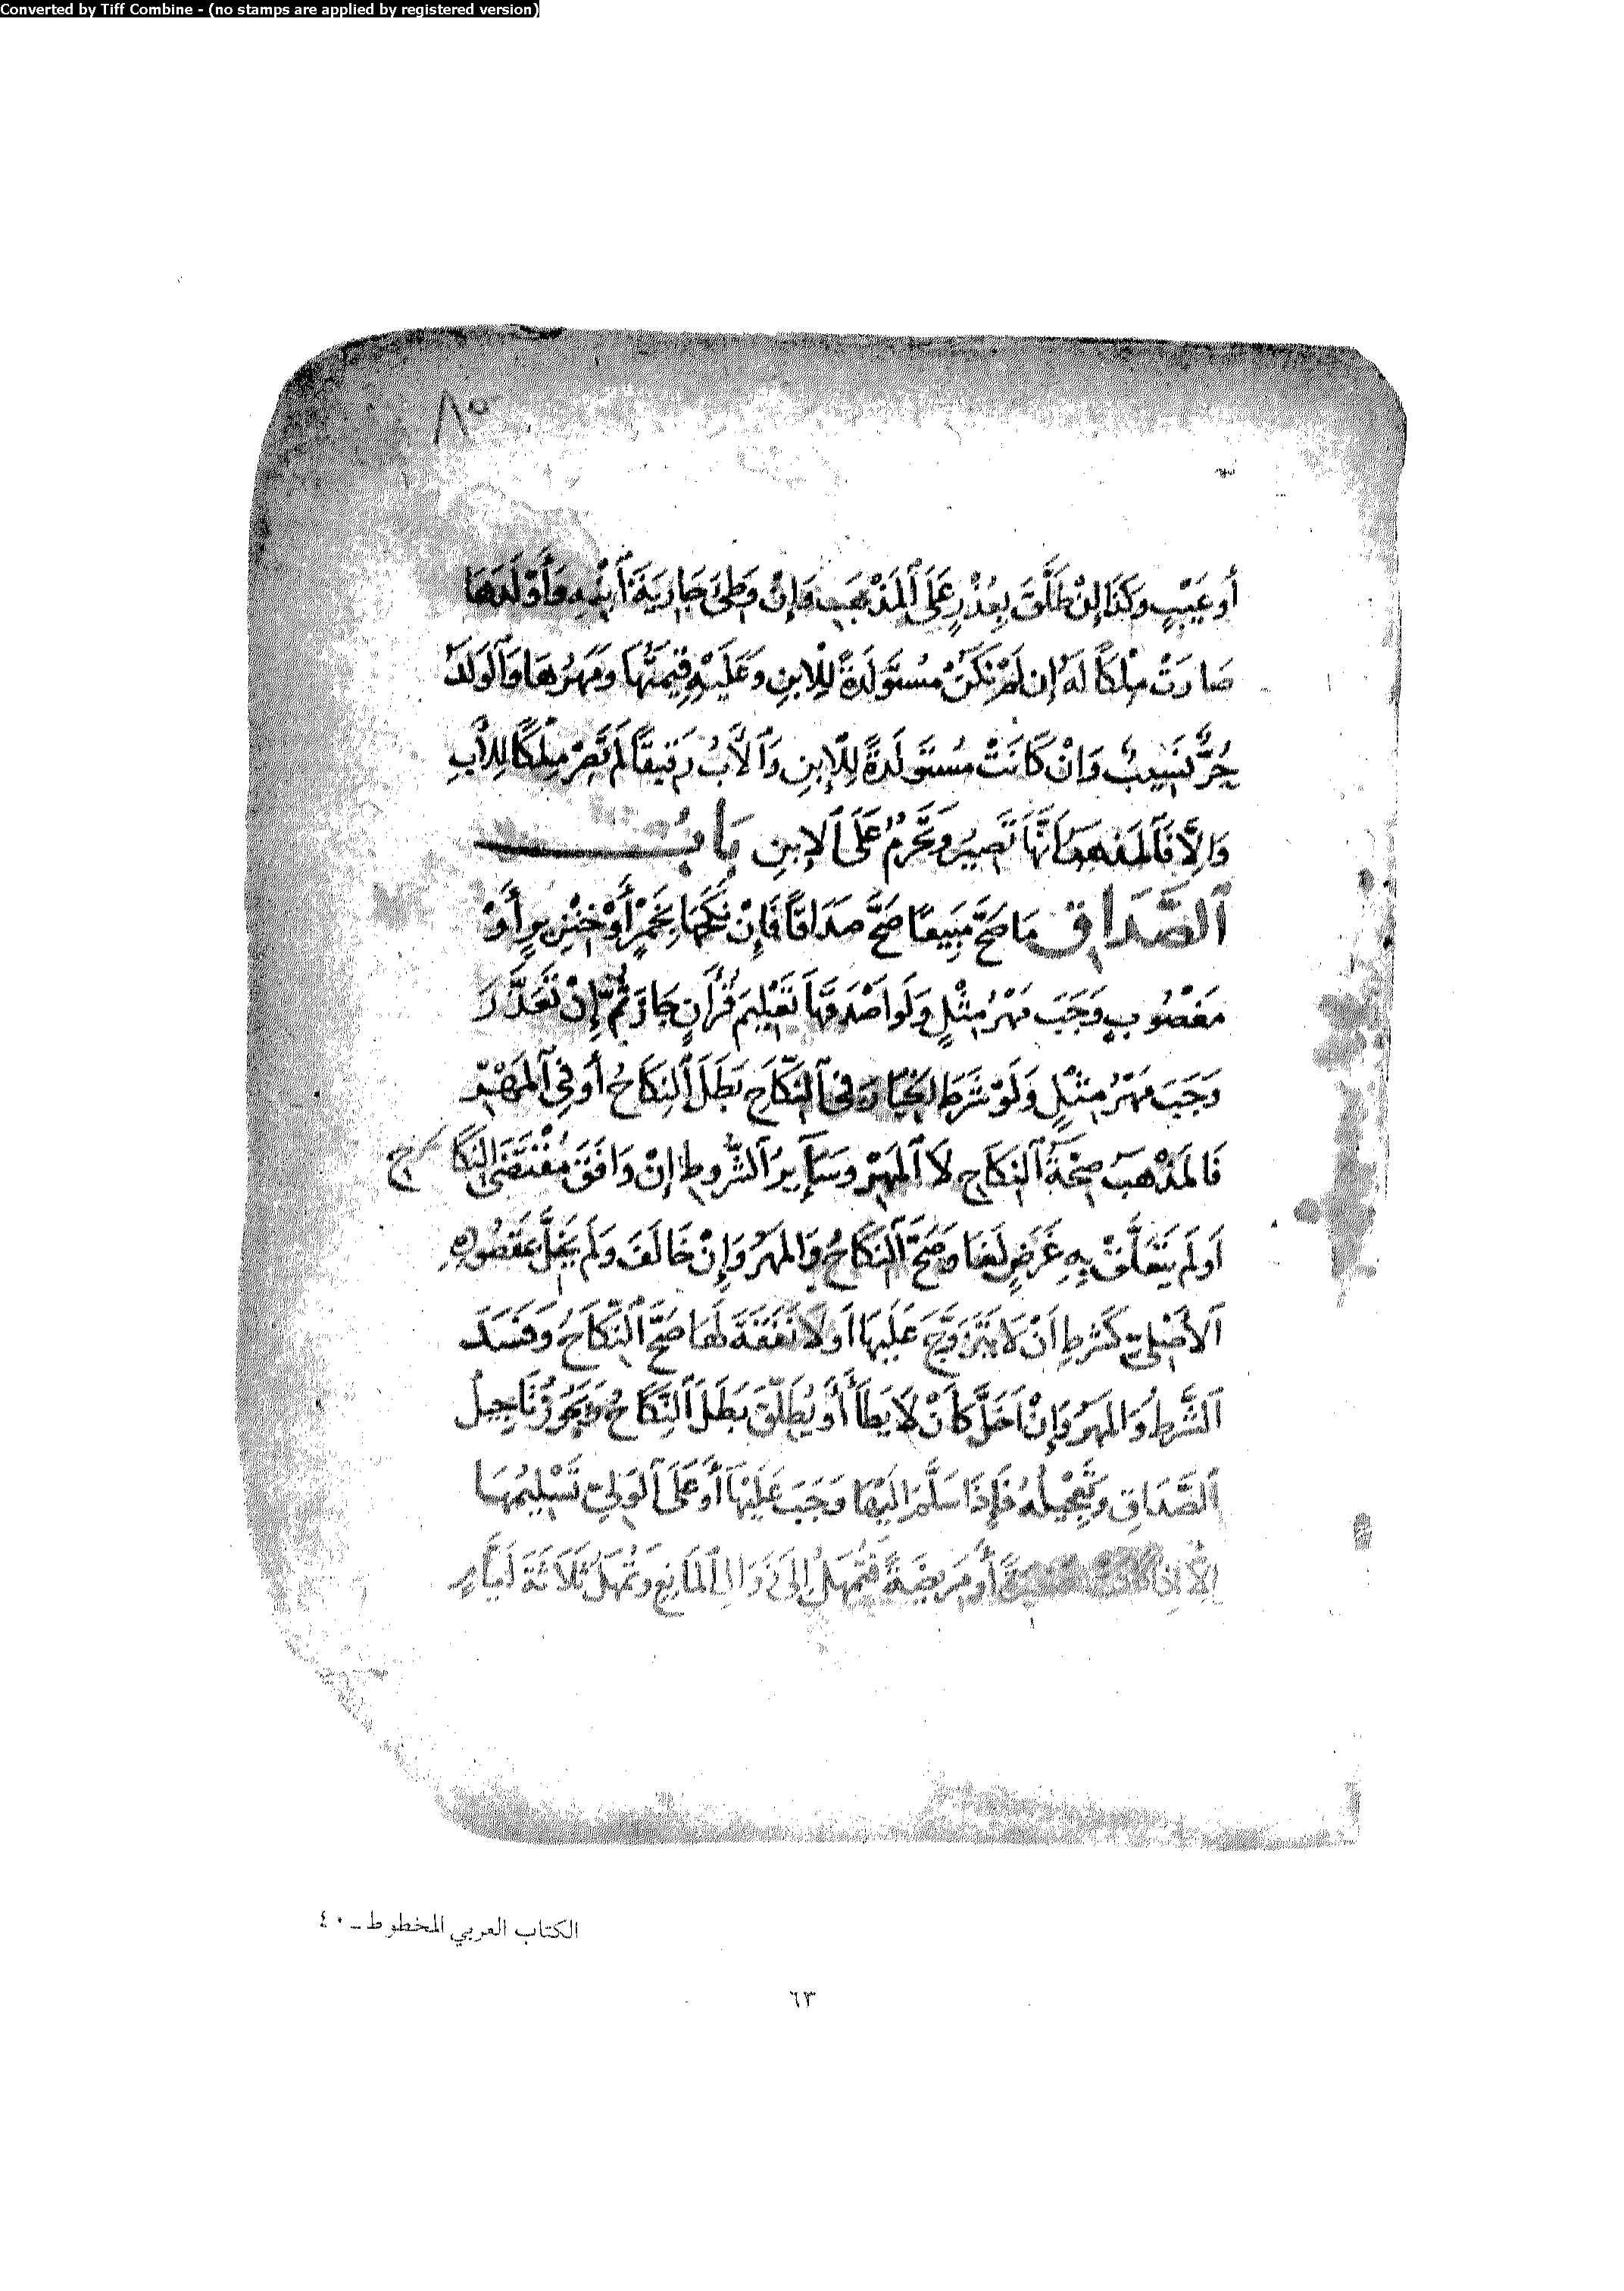 Converted by Tiff Combine - (no stamps are applied by registered version)
٨٥
أَوْ عَيْبٍ وَكَذَا إِنْ طَلَّقَ بِعُذْرٍ عَلَى ٱلْمَذْهَبِ وَإِنْ وَطِئَ جَارِيَةَ ٱبْنِهِ وَأَوْلَدَهَا
صَارَتْ مِلْكًا لَهُ إِن لَمْ تَكُنْ مُسْتَوْلَدَةً لِلِابنِ وَعَلَيْهِ قِيمَتُهَا وَمَهْرُهَا وَٱلْوَلَدُ
حُرٌّ نَسِيبٌ وَإِنْ كَانَتْ مُسْتَوْلَدَةً لِلِابنِ وَٱلْأَبُ رَقِيقًا لَمْ تَصِرْ مِلْكًا لِلْأَبِ
وَإِلَّا فَٱلْمَذْهَبُ أَنَّهَا تَصِيرُ وَتَحْرُمُ عَلَى ٱلِابنِ بَابُ
ٱلصَّدَاقِ مَا صَحَّ مَبِيعًا صَحَّ صَدَاقًا فَإِنْ نَكَحَهَا بِخَمْرٍ أَوْ خِنْزِيرٍ أَوْ
مَغْصُوبٍ وَجَبَ مَهْرُ مِثْلٍ وَلَو أَصْدَقَهَا تَعْلِيمَ قُرْآنٍ جَازَ ثُمَّ إِنْ تَعَذَّرَ
وَجَبَ مَهْرُ مِثْلٍ وَلَوْ شَرَطَ ٱلْخِيَارَ فِي ٱلنِّكَاحِ بَطَلَ ٱلنِّكَاحُ أَو فِي ٱلْمَهْرِ
فَالمَذْهَبُ صِحَّةُ ٱلنِّكَاحِ لَا ٱلْمَهْرِ وَسَائِرُ ٱلشُّرُوطِ إِنْ وَافَقَ مُقْتَضَى ٱلنِّكَاحِ
أَو لَم يَتَعَلَّقْ بِهِ غَرَضٍ لَغَا وَصَحَّ ٱلنِّكَاحُ وَالمَهْرُ وَإِنْ خَالَفَ وَلَم يُخِلَّ بِمَقْصُودِهِ
ٱلْأَصْلِيِّ كَشَرطِ أَنْ لَا يَتَزَوَّجَ عَلَيهَا أَو لَا نَفَقَةَ لَهَا صَحَّ ٱلنِّكَاحُ وَفَسَدَ
ٱلشَّرطُ وَالمَهرُ وَإِنْ أَخَلَّ كَأَنْ لَا يَطَأَ أَوْ يُطَلِّقَ بَطَلَ ٱلنِّكَاحُ وَيَجُوزُ تَأْجِيلُ
ٱلصَّدَاقِ وَتَعْجِيلُهُ فَإِذَا سَلَّمَ إِلَيْهَا وَجَبَ عَلَيْهَا أَوْ عَلَى ٱلوَلِيِّ تَسْلِيمُهَا
أَوْ مَرِيضَةً فَتُمْهَلُ إِلَى زَوَالِ ٱلْمَانِعِ وَتُمْهَلُ ثَلَاثَةَ أَيَّامٍ
الكتاب العربي المخطوط ـ ٤٠
٦٣